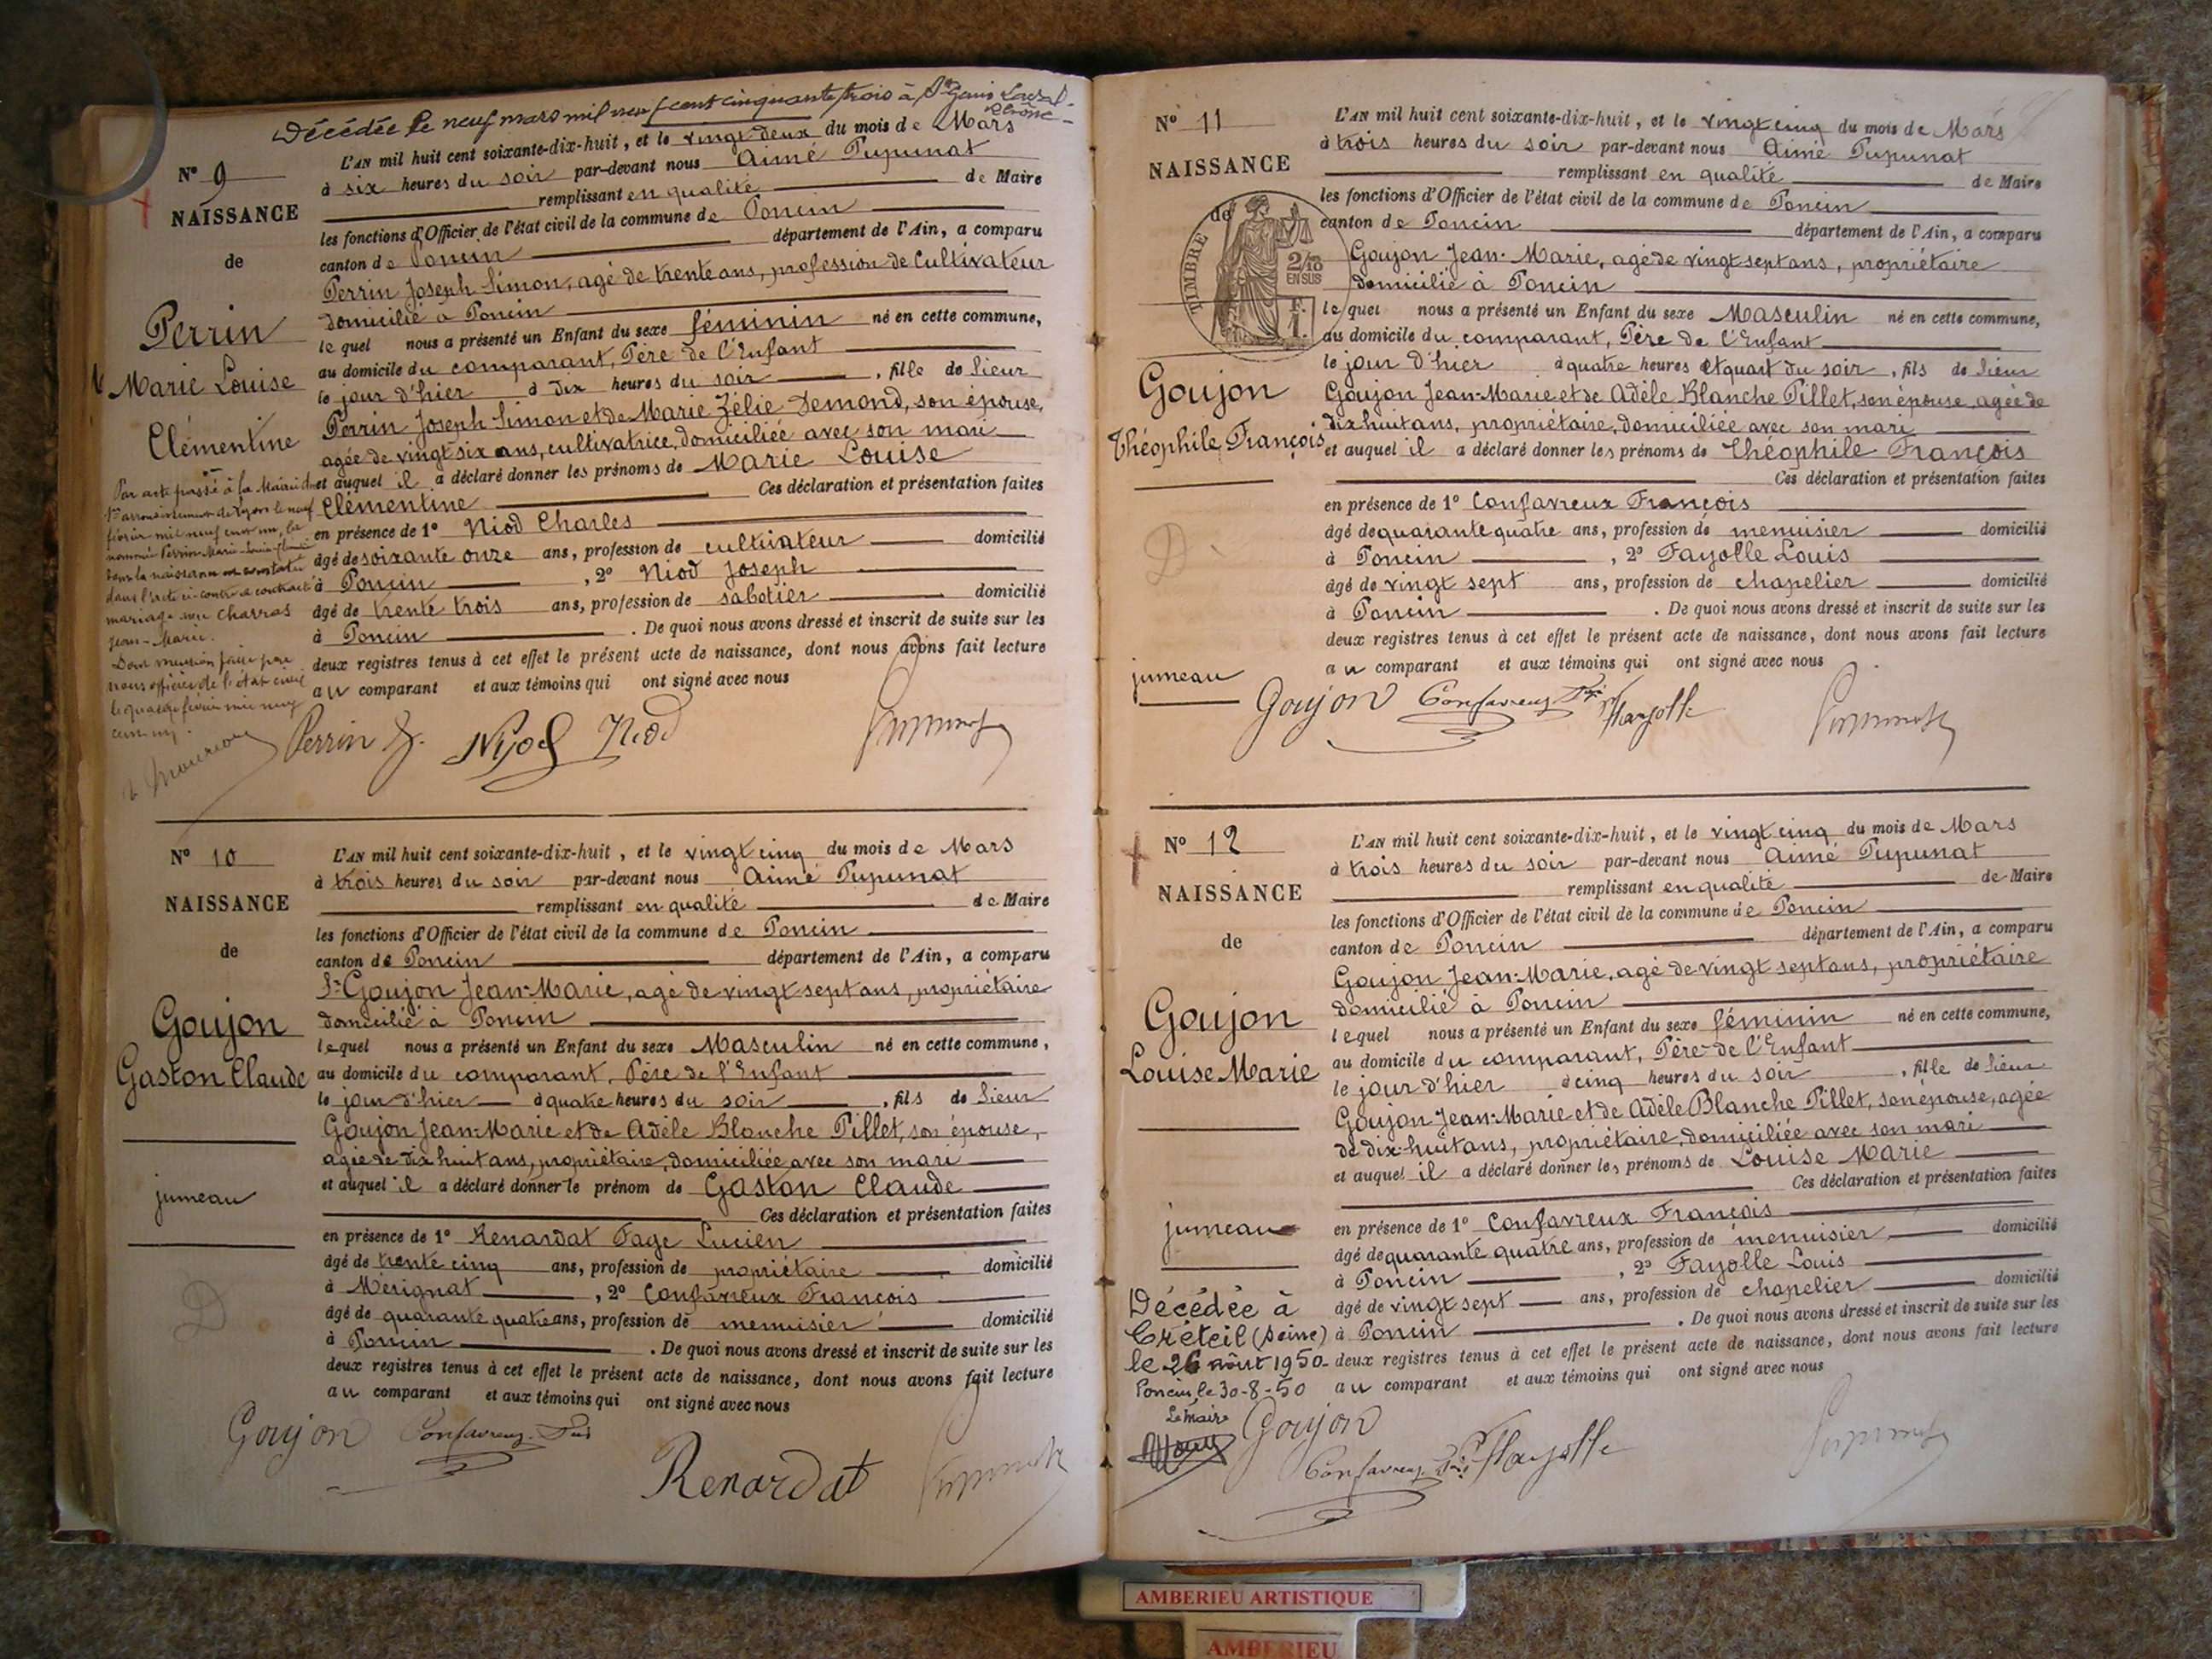 Décédée le neuf mars mil neuf cent cinquante trois à St Genis Laval
Rhône
N° 9
NAISSANCE
de
Perrin
Marie Louise
Clémentine
L'AN mil huit cent soixante-dix-huit, et le vingt deux du mois de Mars
à six heures du soir par-devant nous Aimé Pupunat
remplissant en qualité de Maire
les fonctions d'Officier de l'état civil de la commune de Poncin
canton de Poncin département de l'Ain, a comparu
Perrin Joseph Simon, agé de trente ans, profession de Cultivateur
domicilié à Poncin
lequel nous a présenté un Enfant du sexe féminin né en cette commune,
au domicile du comparant, Père de l'Enfant
le jour d'hier à dix heures du soir, fille de Sieur
Perrin Joseph Simon et de Marie Zélie Demond, son épouse,
agée de vingt six ans, cultivatrice, domiciliée avec son mari
et auquel il a déclaré donner les prénoms de Marie Louise
Clémentine Ces déclaration et présentation faites
en présence de 1° Niod Charles
âgé de soixante onze ans, profession de cultivateur domicilié
à Poncin, 2° Niod Joseph
âgé de trente trois ans, profession de sabotier domicilié
à Poncin. De quoi nous avons dressé et inscrit de suite sur les
deux registres tenus à cet effet le présent acte de naissance, dont nous avons fait lecture
au comparant et aux témoins qui ont signé avec nous
Par acte passé à la Mairie du
1er arrondissement de Lyon le neuf
février mil neuf cent un, la
nommée Perrin Marie-Louise
dont la naissance est constatée
dans l'acte ci-contre a contracté
mariage avec Charras
Jean-Marie.
Dont mention faite par
nous officier de l'état civil
le quatorze février mil neuf
cent un.
Perrin J. Niod Niod
N° 10
NAISSANCE
de
Goujon
Gaston Claude
jumeau
D
L'AN mil huit cent soixante-dix-huit, et le vingt cinq du mois de Mars
à trois heures du soir par-devant nous Aimé Pupunat
remplissant en qualité de Maire
les fonctions d'Officier de l'état civil de la commune de Poncin
canton de Poncin département de l'Ain, a comparu
Sr Goujon Jean-Marie, agé de vingt sept ans, propriétaire
domicilié à Poncin
lequel nous a présenté un Enfant du sexe Masculin né en cette commune,
au domicile du comparant, Père de l'Enfant
le jour d'hier à quatre heures du soir, fils de Sieur
Goujon Jean-Marie et de Adèle Blanche Pillet, son épouse,
agée de dix huit ans, propriétaire, domiciliée avec son mari
et auquel il a déclaré donner le prénom de Gaston Claude
Ces déclaration et présentation faites
en présence de 1° Renardat Fage Lucien
âgé de trente cinq ans, profession de propriétaire domicilié
à Mérignat, 2° Confavreux François
âgé de quarante quatre ans, profession de menuisier domicilié
à Poncin. De quoi nous avons dressé et inscrit de suite sur les
deux registres tenus à cet effet le présent acte de naissance, dont nous avons fait lecture
au comparant et aux témoins qui ont signé avec nous
Goujon Confavreux
Renardat
N° 11
NAISSANCE
de
TIMBRE
2/10
EN SUS
F.
1.
Goujon
Théophile François
D
jumeau
L'AN mil huit cent soixante-dix-huit, et le vingt cinq du mois de Mars
à trois heures du soir par-devant nous Aimé Pupunat
remplissant en qualité de Maire
les fonctions d'Officier de l'état civil de la commune de Poncin
canton de Poncin département de l'Ain, a comparu
Goujon Jean-Marie, agé de vingt sept ans, propriétaire
domicilié à Poncin
lequel nous a présenté un Enfant du sexe Masculin né en cette commune,
au domicile du comparant, Père de l'Enfant
le jour d'hier à quatre heures et quart du soir, fils de Sieur
Goujon Jean-Marie et de Adèle Blanche Pillet, son épouse agée de
dix huit ans, propriétaire, domiciliée avec son mari
et auquel il a déclaré donner les prénoms de Théophile François
Ces déclaration et présentation faites
en présence de 1° Confavreux François
âgé de quarante quatre ans, profession de menuisier domicilié
à Poncin, 2° Fayolle Louis
âgé de vingt sept ans, profession de chapelier domicilié
à Poncin. De quoi nous avons dressé et inscrit de suite sur les
deux registres tenus à cet effet le présent acte de naissance, dont nous avons fait lecture
au comparant et aux témoins qui ont signé avec nous
Goujon Confavreux Fayolle
N° 12
NAISSANCE
de
Goujon
Louise Marie
jumeau
Décédée à
Créteil (Seine)
le 26 août 1950
Poncin, le 30-8-50
Le Maire
L'AN mil huit cent soixante-dix-huit, et le vingt cinq du mois de Mars
à trois heures du soir par-devant nous Aimé Pupunat
remplissant en qualité de Maire
les fonctions d'Officier de l'état civil de la commune de Poncin
canton de Poncin département de l'Ain, a comparu
Goujon Jean-Marie, agé de vingt sept ans, propriétaire
domicilié à Poncin
lequel nous a présenté un Enfant du sexe féminin né en cette commune,
au domicile du comparant, Père de l'Enfant
le jour d'hier à cinq heures du soir, fille de Sieur
Goujon Jean-Marie et de Adèle Blanche Pillet, son épouse, agée
de dix-huit ans, propriétaire, domiciliée avec son mari
et auquel il a déclaré donner les prénoms de Louise Marie
Ces déclaration et présentation faites
en présence de 1° Confavreux François
âgé de quarante quatre ans, profession de menuisier domicilié
à Poncin, 2° Fayolle Louis
âgé de vingt sept ans, profession de chapelier domicilié
à Poncin. De quoi nous avons dressé et inscrit de suite sur les
deux registres tenus à cet effet le présent acte de naissance, dont nous avons fait lecture
au comparant et aux témoins qui ont signé avec nous
Goujon
Confavreux Fayolle
AMBERIEU ARTISTIQUE
AMBERIEU